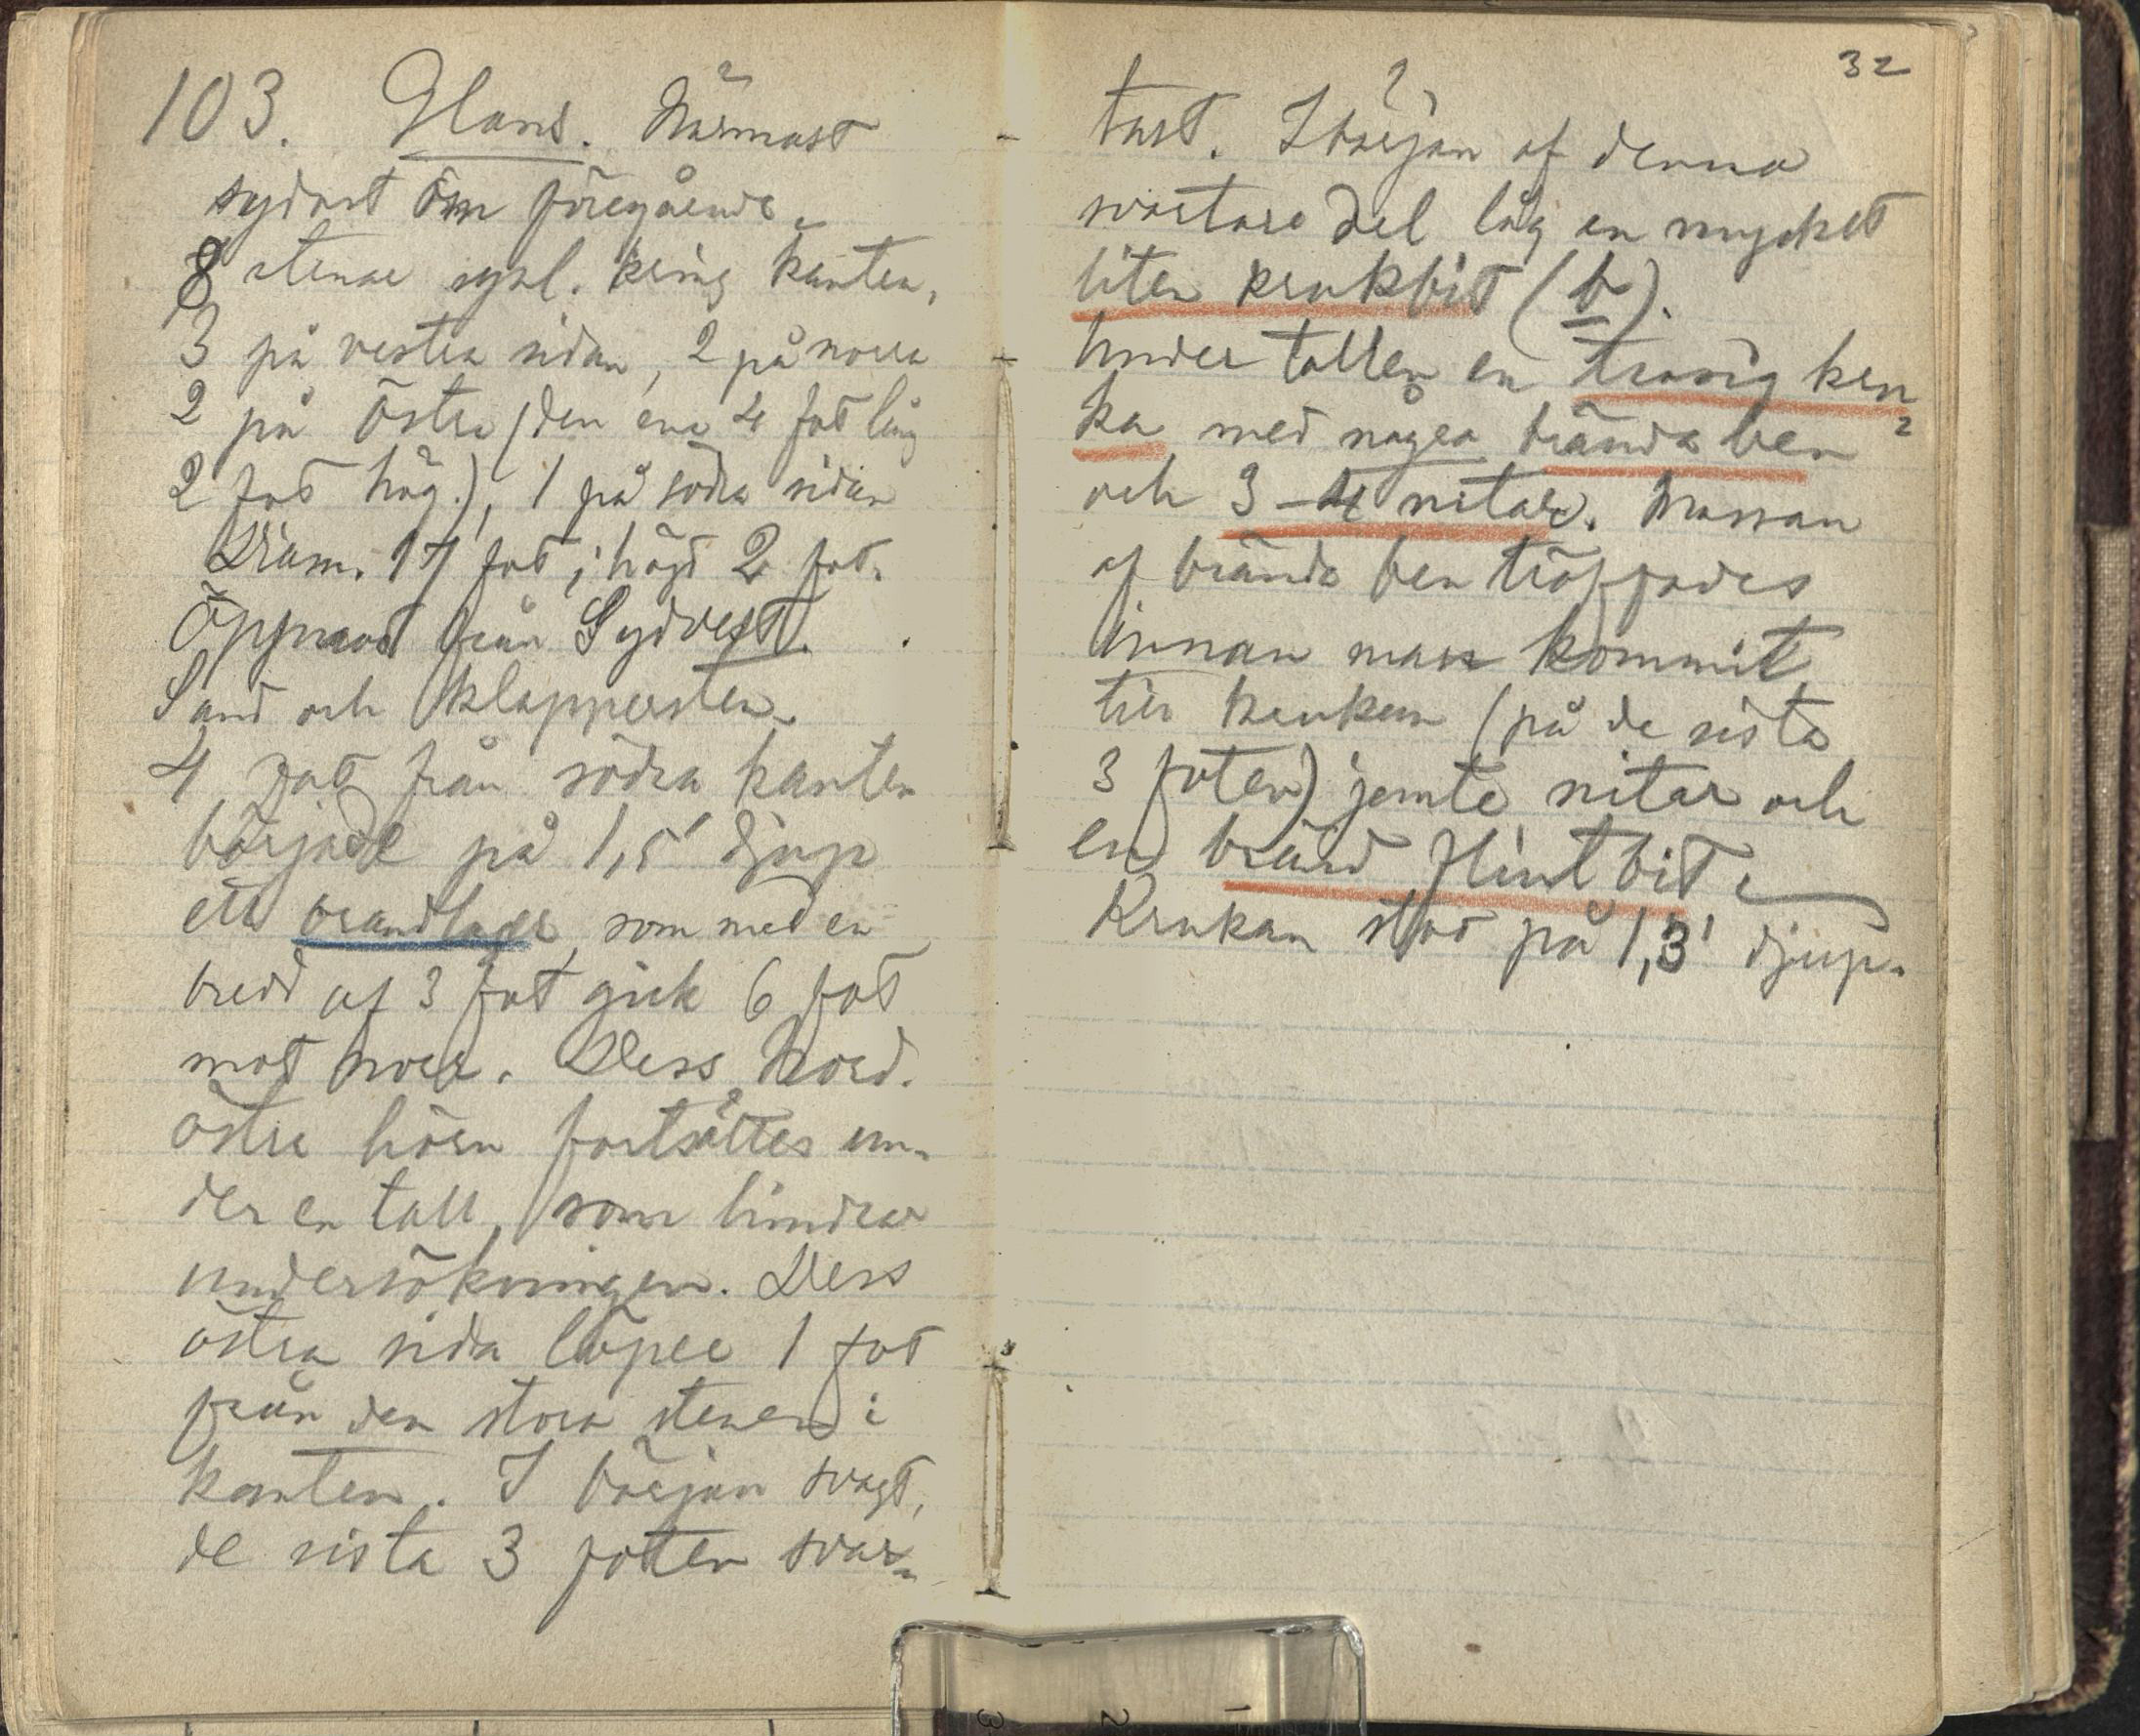 103. Glans. Närmast
sydost om föregående.
8 stenar synl. kring kanten,
3 på vestra sidan, 2 på norra
2 på östra (den ena 4 fot lång
2 fot hög.), 1 på södra sidan
Diam. 17 fot; högd 2 fot.
Öppnad från Sydvest.
Sand och klappersten.
4 fot från södra kanten
började på 1,5' djup
ett brandlager, som med en
bredd af 3 fot gick 6 fot
mot norr. Dess Nord.
östra hörn fortsattes un-
der en tall, som hindrar
undersökningen. Dess
östra sida löper 1 fot
från den stora stenen i
kanten. I början svagt,
de sista 3 foten svar-
32
tast. I början af denna
svartare del låg en mycket
liten krukbit (b).
Under tallen en trasig kru
ka med några brända ben
och 3-4 nitar. Massan
af brända ben träffades
innan man kommit
till krukan (på de sista
3 foten) jemte nitar och
en bränd flintbit.
Krukan stod på 1,3' djup.